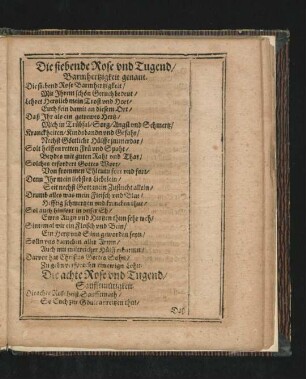 Die siebende Rose vnd Tugend/
Barmhertzigkeit genant.
Die siebend Rose Barmhertzigkeit/
Mit Ihrem schön Geruch bedeut/
Lehret Hertzlich mein Trost vnd Hort/
Euch fein damit an diesem Ort/
Daß Ihr als ein getrewes Hertz/
Mich in Trübsal/Sorg/Angst vnd Schmertz/
Kranckheiten/ vnd Gefahr/
Nechst Göttliche Hülffe immerdar/
Solt helffen retten Früh vnd Spaht/
Beydes mit gutem Raht vnd That/
Solches erfordert Gottes Wort/
Von frommen Eheleuten fort vnd fort/
Denn Ihr mein liebstes Liebelein/
Solt nechst Gott mein Zuflucht allein/
Drumb alles was mein Fleisch vnd Blut/
Hefftig schmertzen vnd krencken thut/
Sol auch hinwider in dieser Eh/
Ewrn Augn vnd Hertzen thun sehr weh/
Sintemal wir ein Fleisch vnd Bein/
Ein Hertz vnd Sinn geworden seyn/
Solln vns daneben aller Armn/
Auch mit milreicher Hülff erbarmn/
Darvor hat Christus Gottes Sohn/
Zugeben verheissen ewigen Lohn.
Die achte Rose vnd Tugend/
Sanfftmütigkeit.
Die achte Ros heist Sanfftmuth/
So Euch zur Gedult anreitzen thut/
Daß